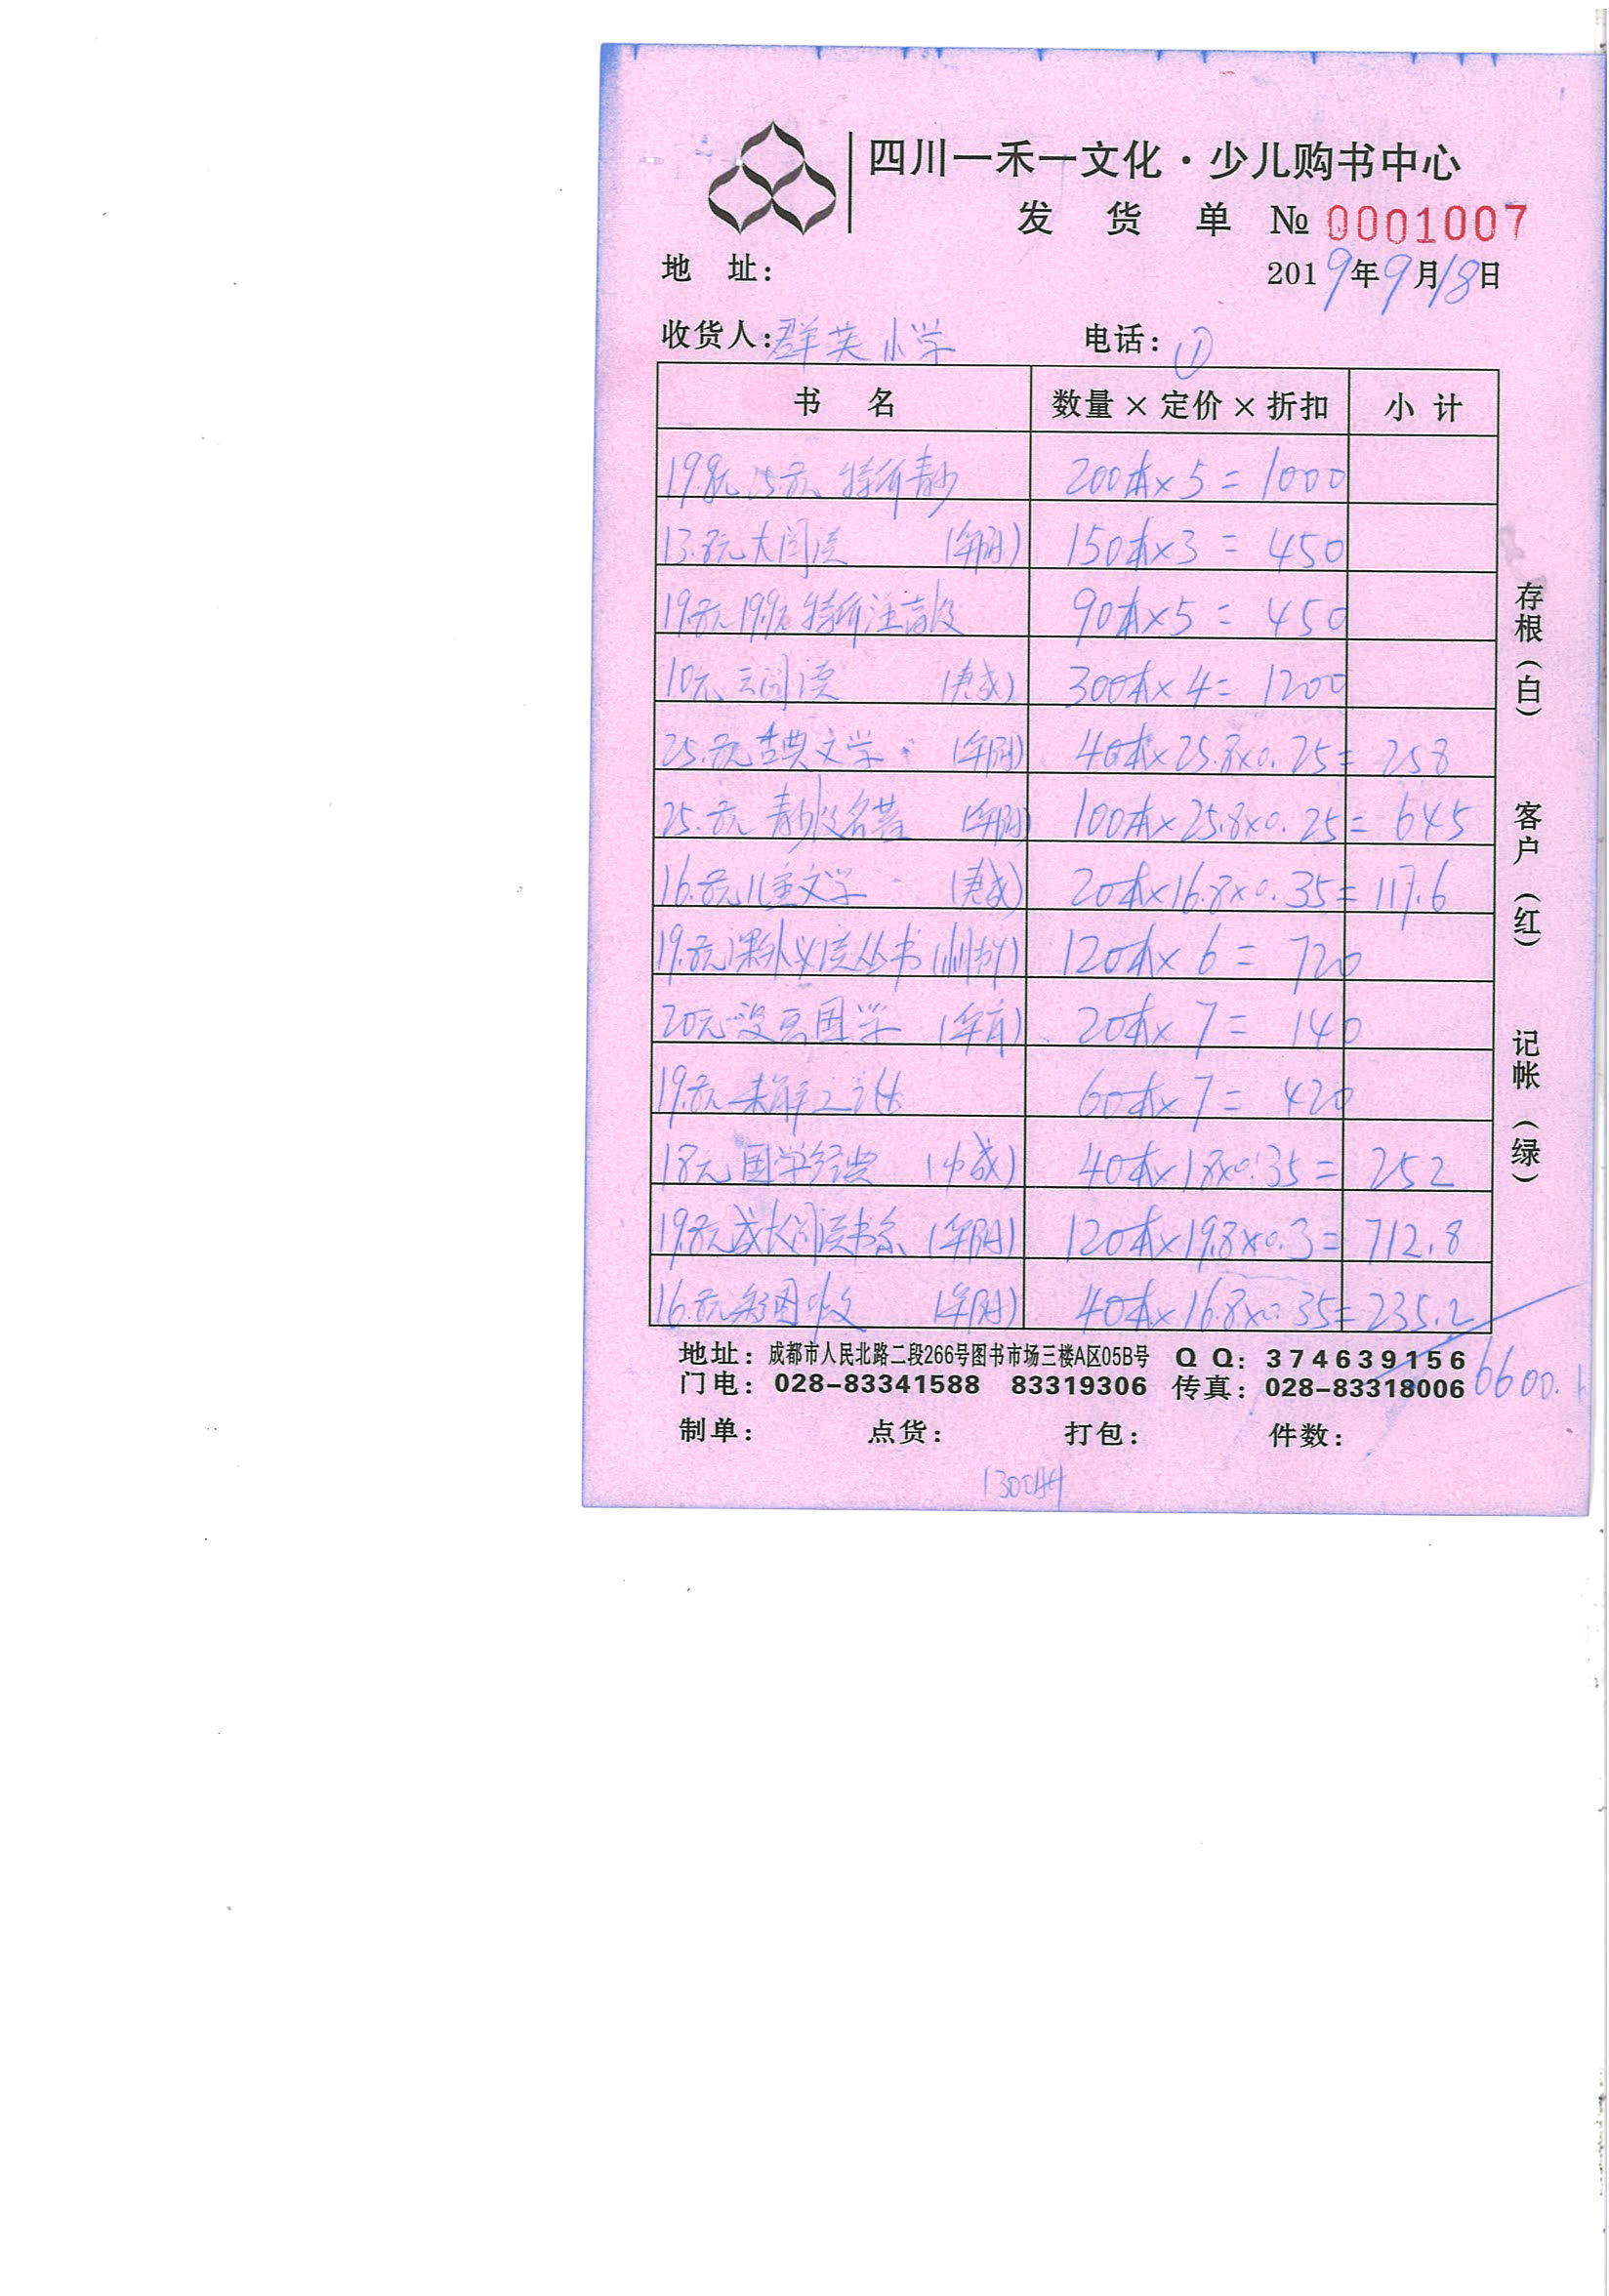 四川一禾一文化·少儿购书中心
发 货 单 № 0001007
地 址：
2019年9月18日
收货人：群英小学 电话：①
书 名 数量×定价×折扣 小 计
19.8元 25.8元 特价青少 200本×5= 1000
13.8元大阅读 150本×3= 450
19.8元 19.9元特价注音版 90本×5= 450
10元 云阅读 300本×4= 1200
25.8元古典文学 40本×25.8×0.25= 258
25.8元 青少版名著 100本×25.8×0.25= 645
16.8元儿童文学 20本×16.8×0.35= 117.6
19.8元课外必读丛书 120本×6= 720
20元 国学 20本×7= 140
19.8元 未解之谜 60本×7= 420
18元 国学经典 40本×18×0.35= 252
19.8元成长阅读书系 120本×19.8×0.3= 712.8
16.8元彩图 40本×16.8×0.35= 235.2
存根（白） 客户（红） 记帐（绿）
地址：成都市人民北路二段266号图书市场三楼A区05B号 QQ：374639156
门电：028-83341588 83319306 传真：028-83318006
6600.
制单： 点货： 打包： 件数：
1300本